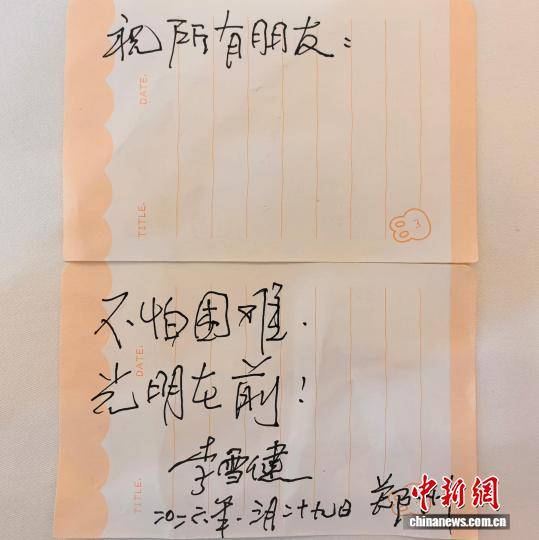 祝所有朋友：
DATE.
TITLE.
3
不怕困难.
光明在前!
DATE.
李雪健
TITLE.
二〇二六年.三月二十九日 郑州
中新网
chinanews.com.cn